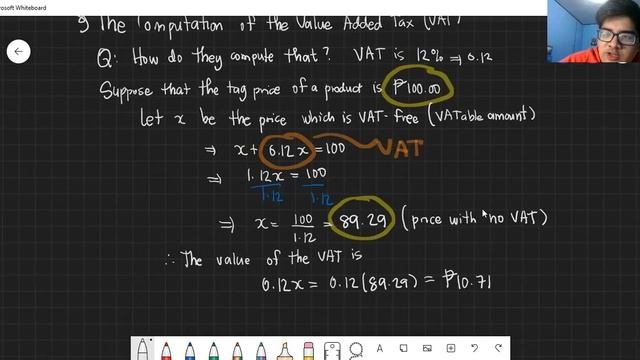 Microsoft Whiteboard
The Computation of the Value Added Tax (VAT)
Q: How do they compute that? VAT is 12% ⇒ 0.12
Suppose that the tag price of a product is ₱100.00
Let x be the price which is VAT-free (VATable amount)
⇒ x + 0.12x = 100 VAT
⇒ 1.12x = 100
1.12 1.12
⇒ x = 100/1.12 = 89.29 (price with no VAT)
∴ The value of the VAT is
0.12x = 0.12(89.29) = ₱10.71